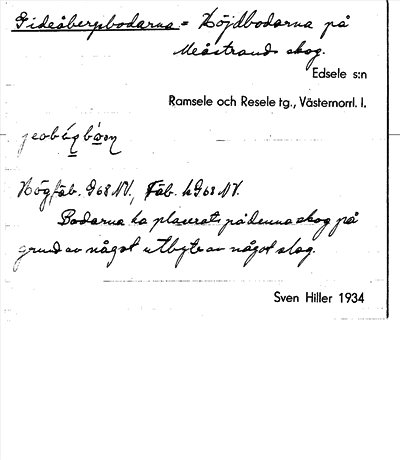 Gideåbergsbodarna = Höjdbodarna på
Meåstrands skog.
Edsele s:n
Ramsele och Resele tg., Västernorrl. l.
Högfäb. 9G8 NV, Fäb. h 9G8 NV.
Bodarna ha placerats på denna skog på
grund av något utbyte av något slag.
Sven Hiller 1934